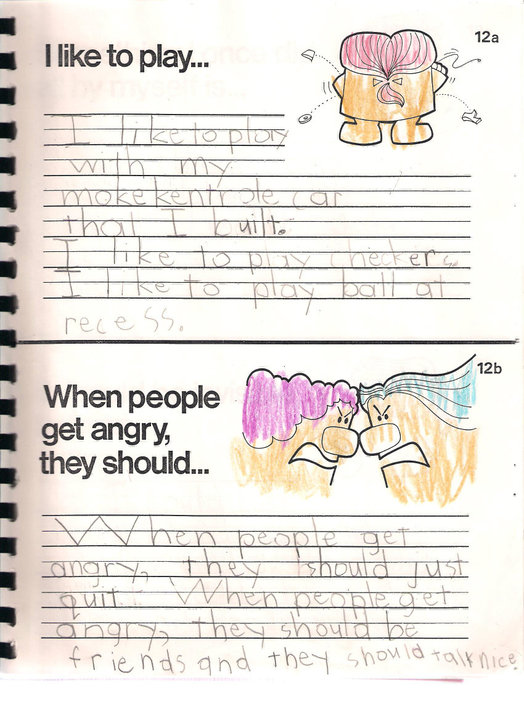 I like to play...
12a
I like to play
with my
mokekentrole car
that I built.
I like to play checkers.
I like to play ball at
recess.
When people
get angry,
they should...
12b
When people get
angry, they should just
quit. When people get
angry, they should be
friends and they should talk nice.